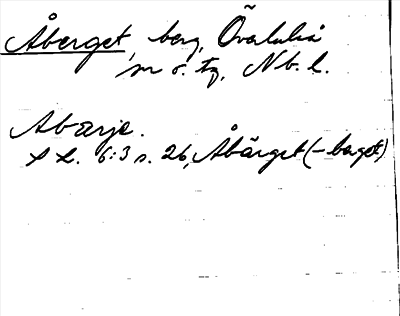 Åberget, berg, Överluleå
sn o. tg, Nb. l.
Abærje.
S L. 6:3 s. 26, Åbärget (-barget)